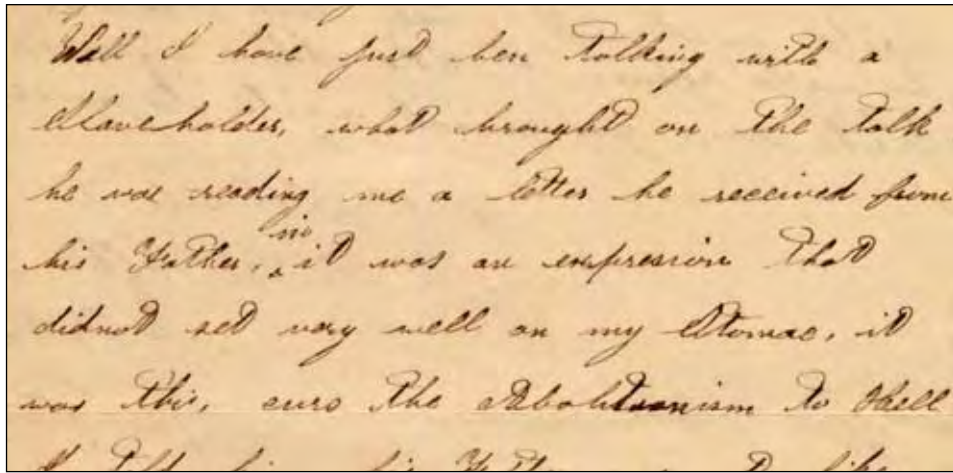 Well I have just ben talking with a
Slaveholder, what brought on the talk
he was reading me a letter he received from
his Father, in it was an expresion that
didnot set very well on my Stomac, it
was this, curs the Abolitionism to Hell
I told him his Father